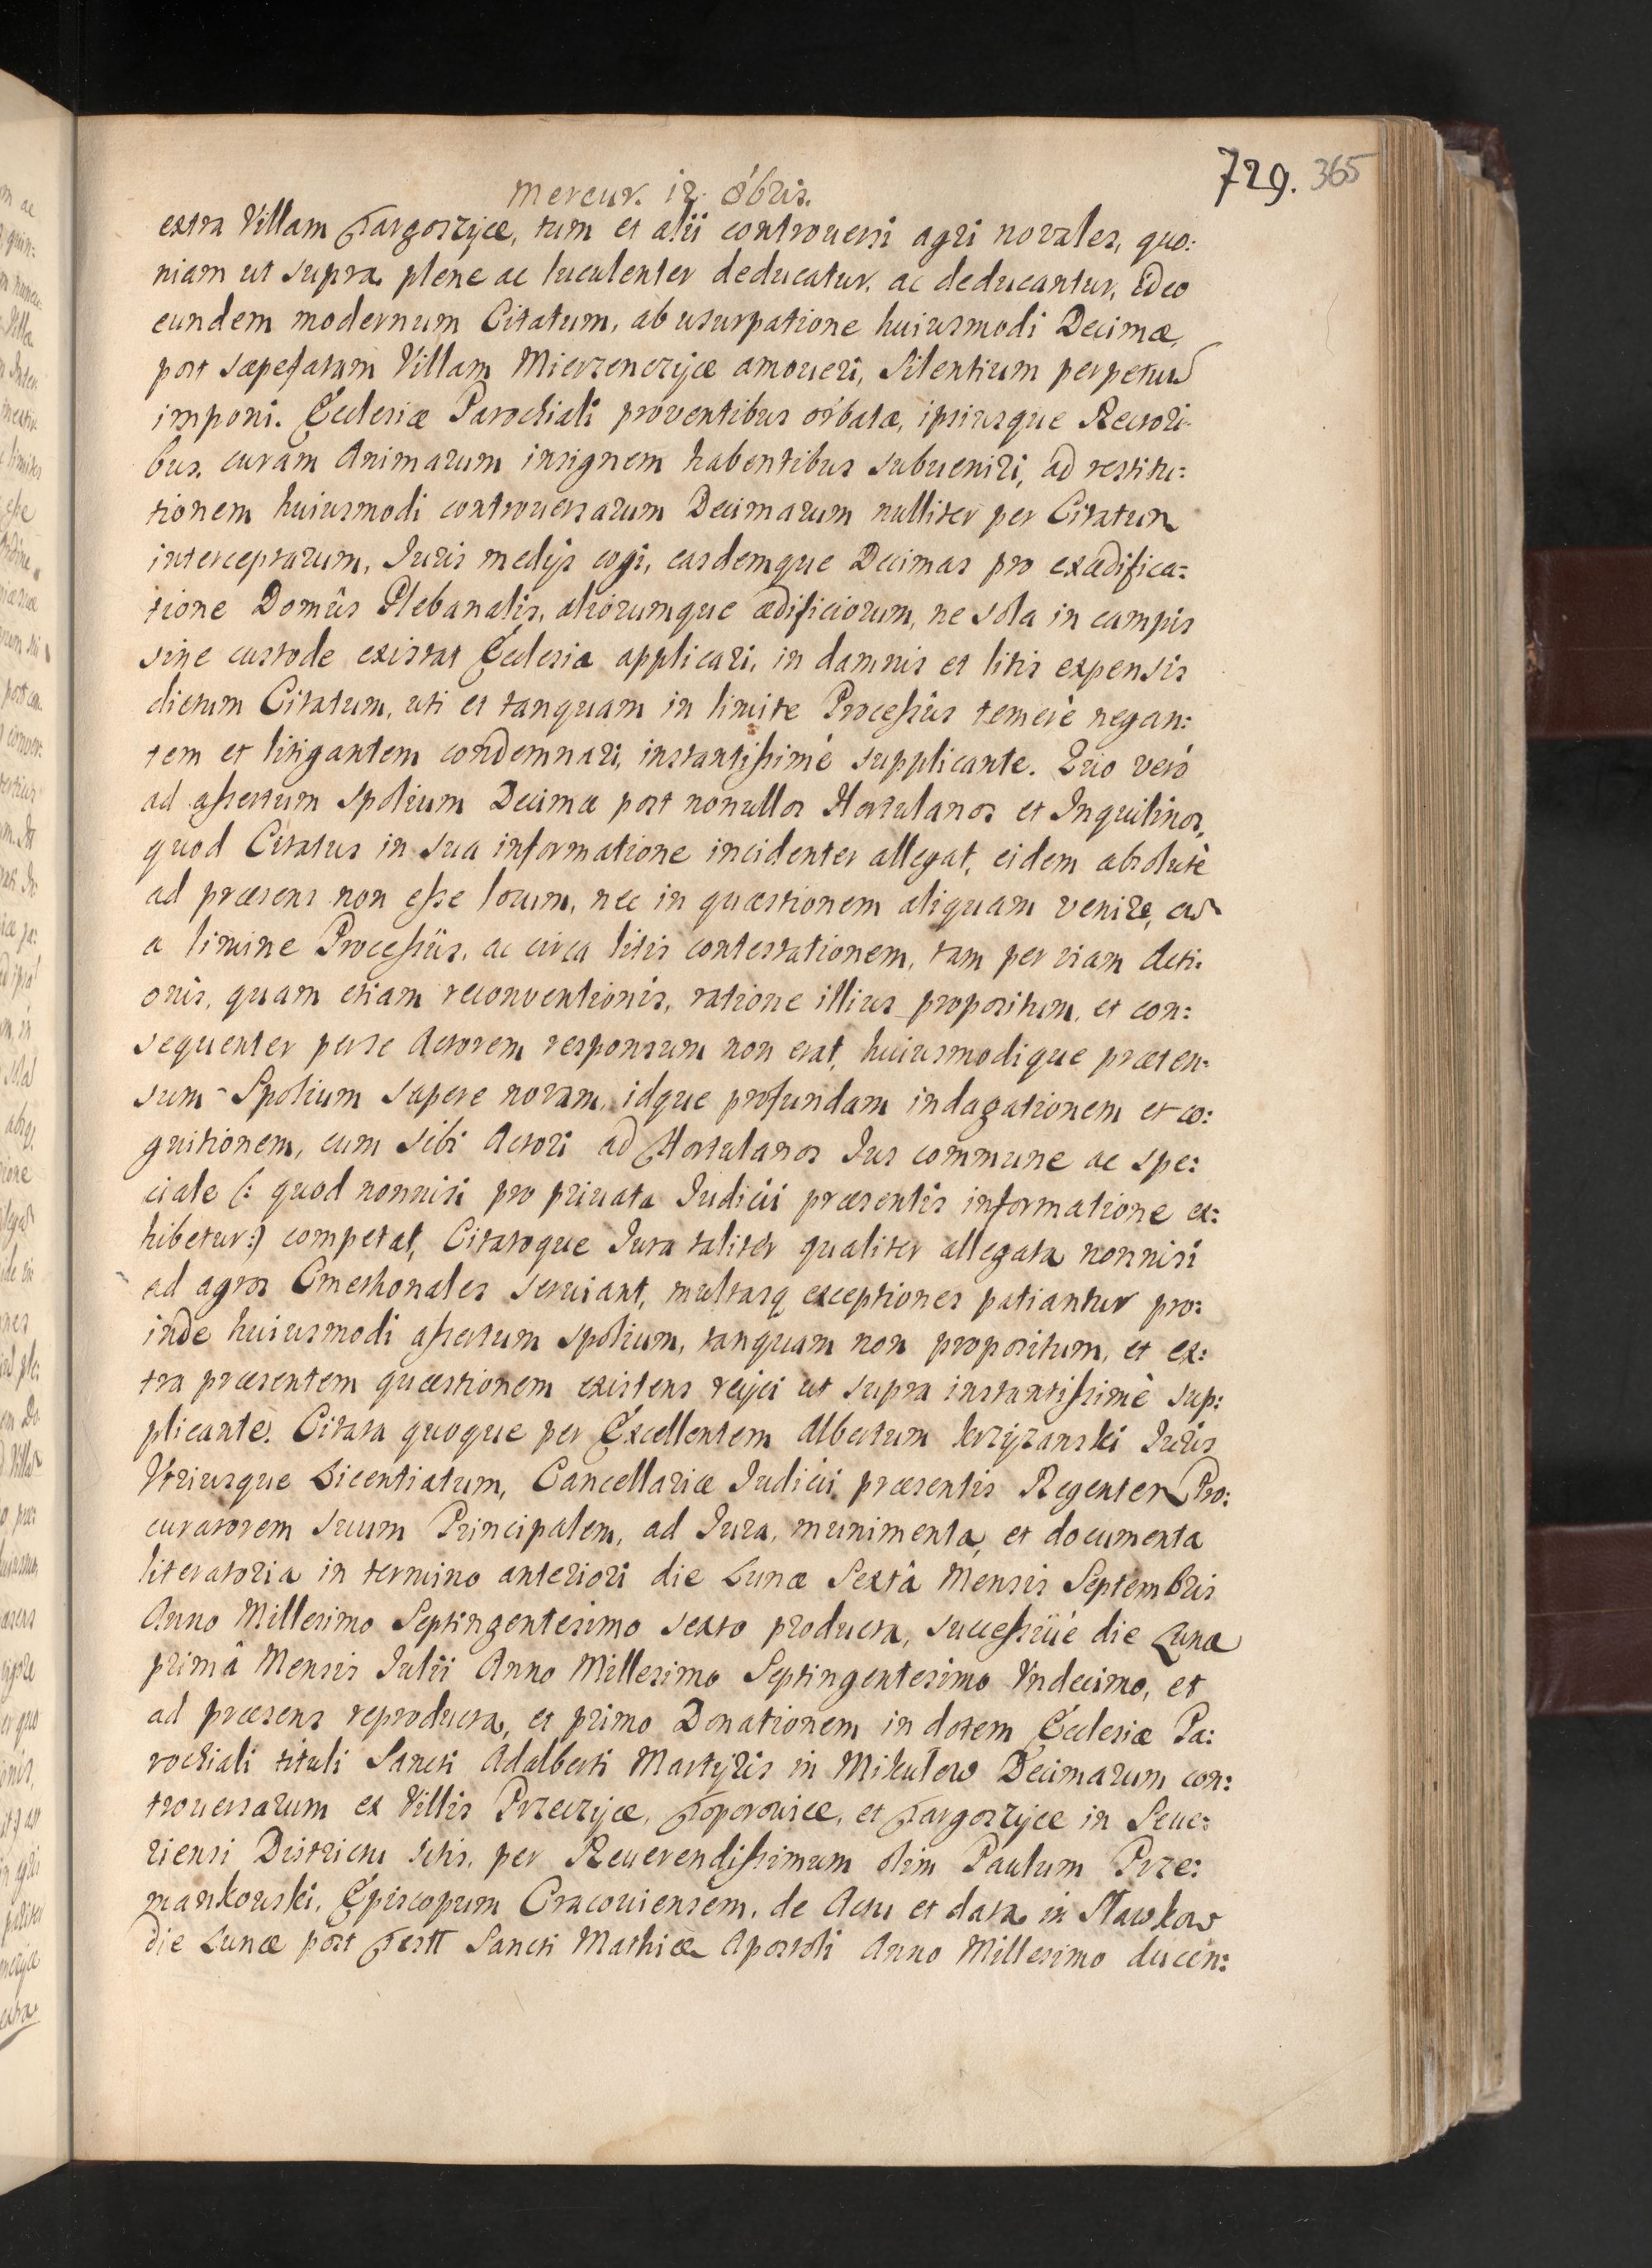 729. 365
Mercur. 12. 8bris.
extra Villam Targoszyce, tum et alii controuersi agri novales, quo:
niam ut supra plene ac luculenter deducatur, ac deducantur, Ideo
eundem modernum Citatum, ab usurpatione huiusmodi Decimæ,
post sæpefatam Villam Mierzenczyce amoueri, Silentium perpetuũ
imponi. Ecclesiæ Parochiali proventibus orbatæ, ipsiusque Rectori-
bus, curam Animarum insignem habentibus subueniri, ad restitu:
tionem huiusmodi controuersarum Decimarum nulliter per Citatum
interceptarum, Iuris medijs cogi, easdemque Decimas pro exædifica:
tione Domûs Plebanalis, aliorumque ædificiorum, ne sola in campis
sine custode existat Ecclesia applicari, in damnis et litis expensis
dictum Citatum, uti et tanquam in limite Processûs temerè negan:
tem et litigantem condemnari, instantissimè supplicante. Quo verò
ad assertum Spolium Decimæ post nonullos Hortulanos et Inquilinos,
quod Citatus in sua informatione incidenter allegat, eidem absolutè
ad præsens non esse locum, nec in quæstionem aliquam venire,
a limine Processûs, ac circa litis contestationem, tam per viam Acti:
onis, quam etiam reconventionis, ratione illius propositum, et con:
sequenter perse Actorem responsum non erat, huiusmodique præten:
sum Spolium sapere novam, idque profundam indagationem et co:
gnitionem, cum sibi Actori ad Hortulanos Ius commune ac spe:
ciale (: quod nonnisi pro priuata Iudicii præsentis informatione ex:
hibetur:) competat, Citatoque Iura taliter qualiter allegata nonnisi
ad agros Cmethonales seruiant, multasq exceptiones patiantur pro:
inde huiusmodi assertum spolium, tanquam non propositum, et ex:
tra præsentem quæstionem existens reijci ut supra instantissimè sup:
plicante. Citata quoque per Excellentem Albertum Krzyzanski Iuris
Vtriusque Licentiatum, Cancellariæ Iudicii præsentis Regentem Pro:
curatorem suum Principalem, ad Iura, munimenta, et documenta
literatoria in termino anteriori die Lunæ Sextâ Mensis Septembris
Anno Millesimo Septingentesimo sexto producta, successiuè die Lunæ
primâ Mensis Iulii Anno Millesimo Septingentesimo Vndecimo, et
ad præsens reproducta, et primo Donationem in dotem Ecclesiæ Pa:
rochiali tituli Sancti Adalberti Martyris in Mikulow Decimarum con:
trouersarum ex Villis Przeczyce, Toporowice, et Targoszyce in Seue:
riensi Districtu sitis, per Reuerendissimum olim Paulum Prze:
mankowski, Episcopum Cracouiensem, de Actu et data in Slawkow
die Lunæ post Festt Sancti Mathiæ Apostoli Anno Millesimo ducen: